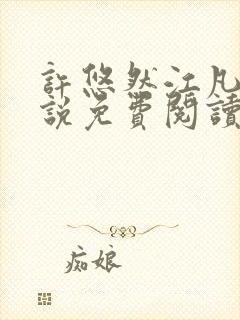 許悠然江凡
說免費閱讀
痴娘